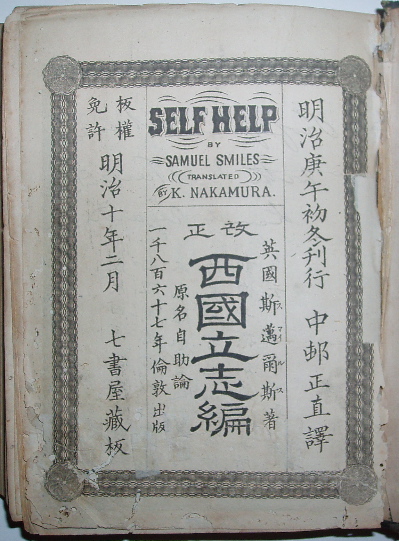 SELF HELP
BY
SAMUEL SMILES
TRANSLATED
BY K. NAKAMURA.
明治庚午初冬刊行 中邨正直譯
英國斯邁爾斯著
スマイルス
改正
西國立志編
原名自助論
一千八百六十七年倫敦出版
版權免許
明治十年二月 七書屋藏板